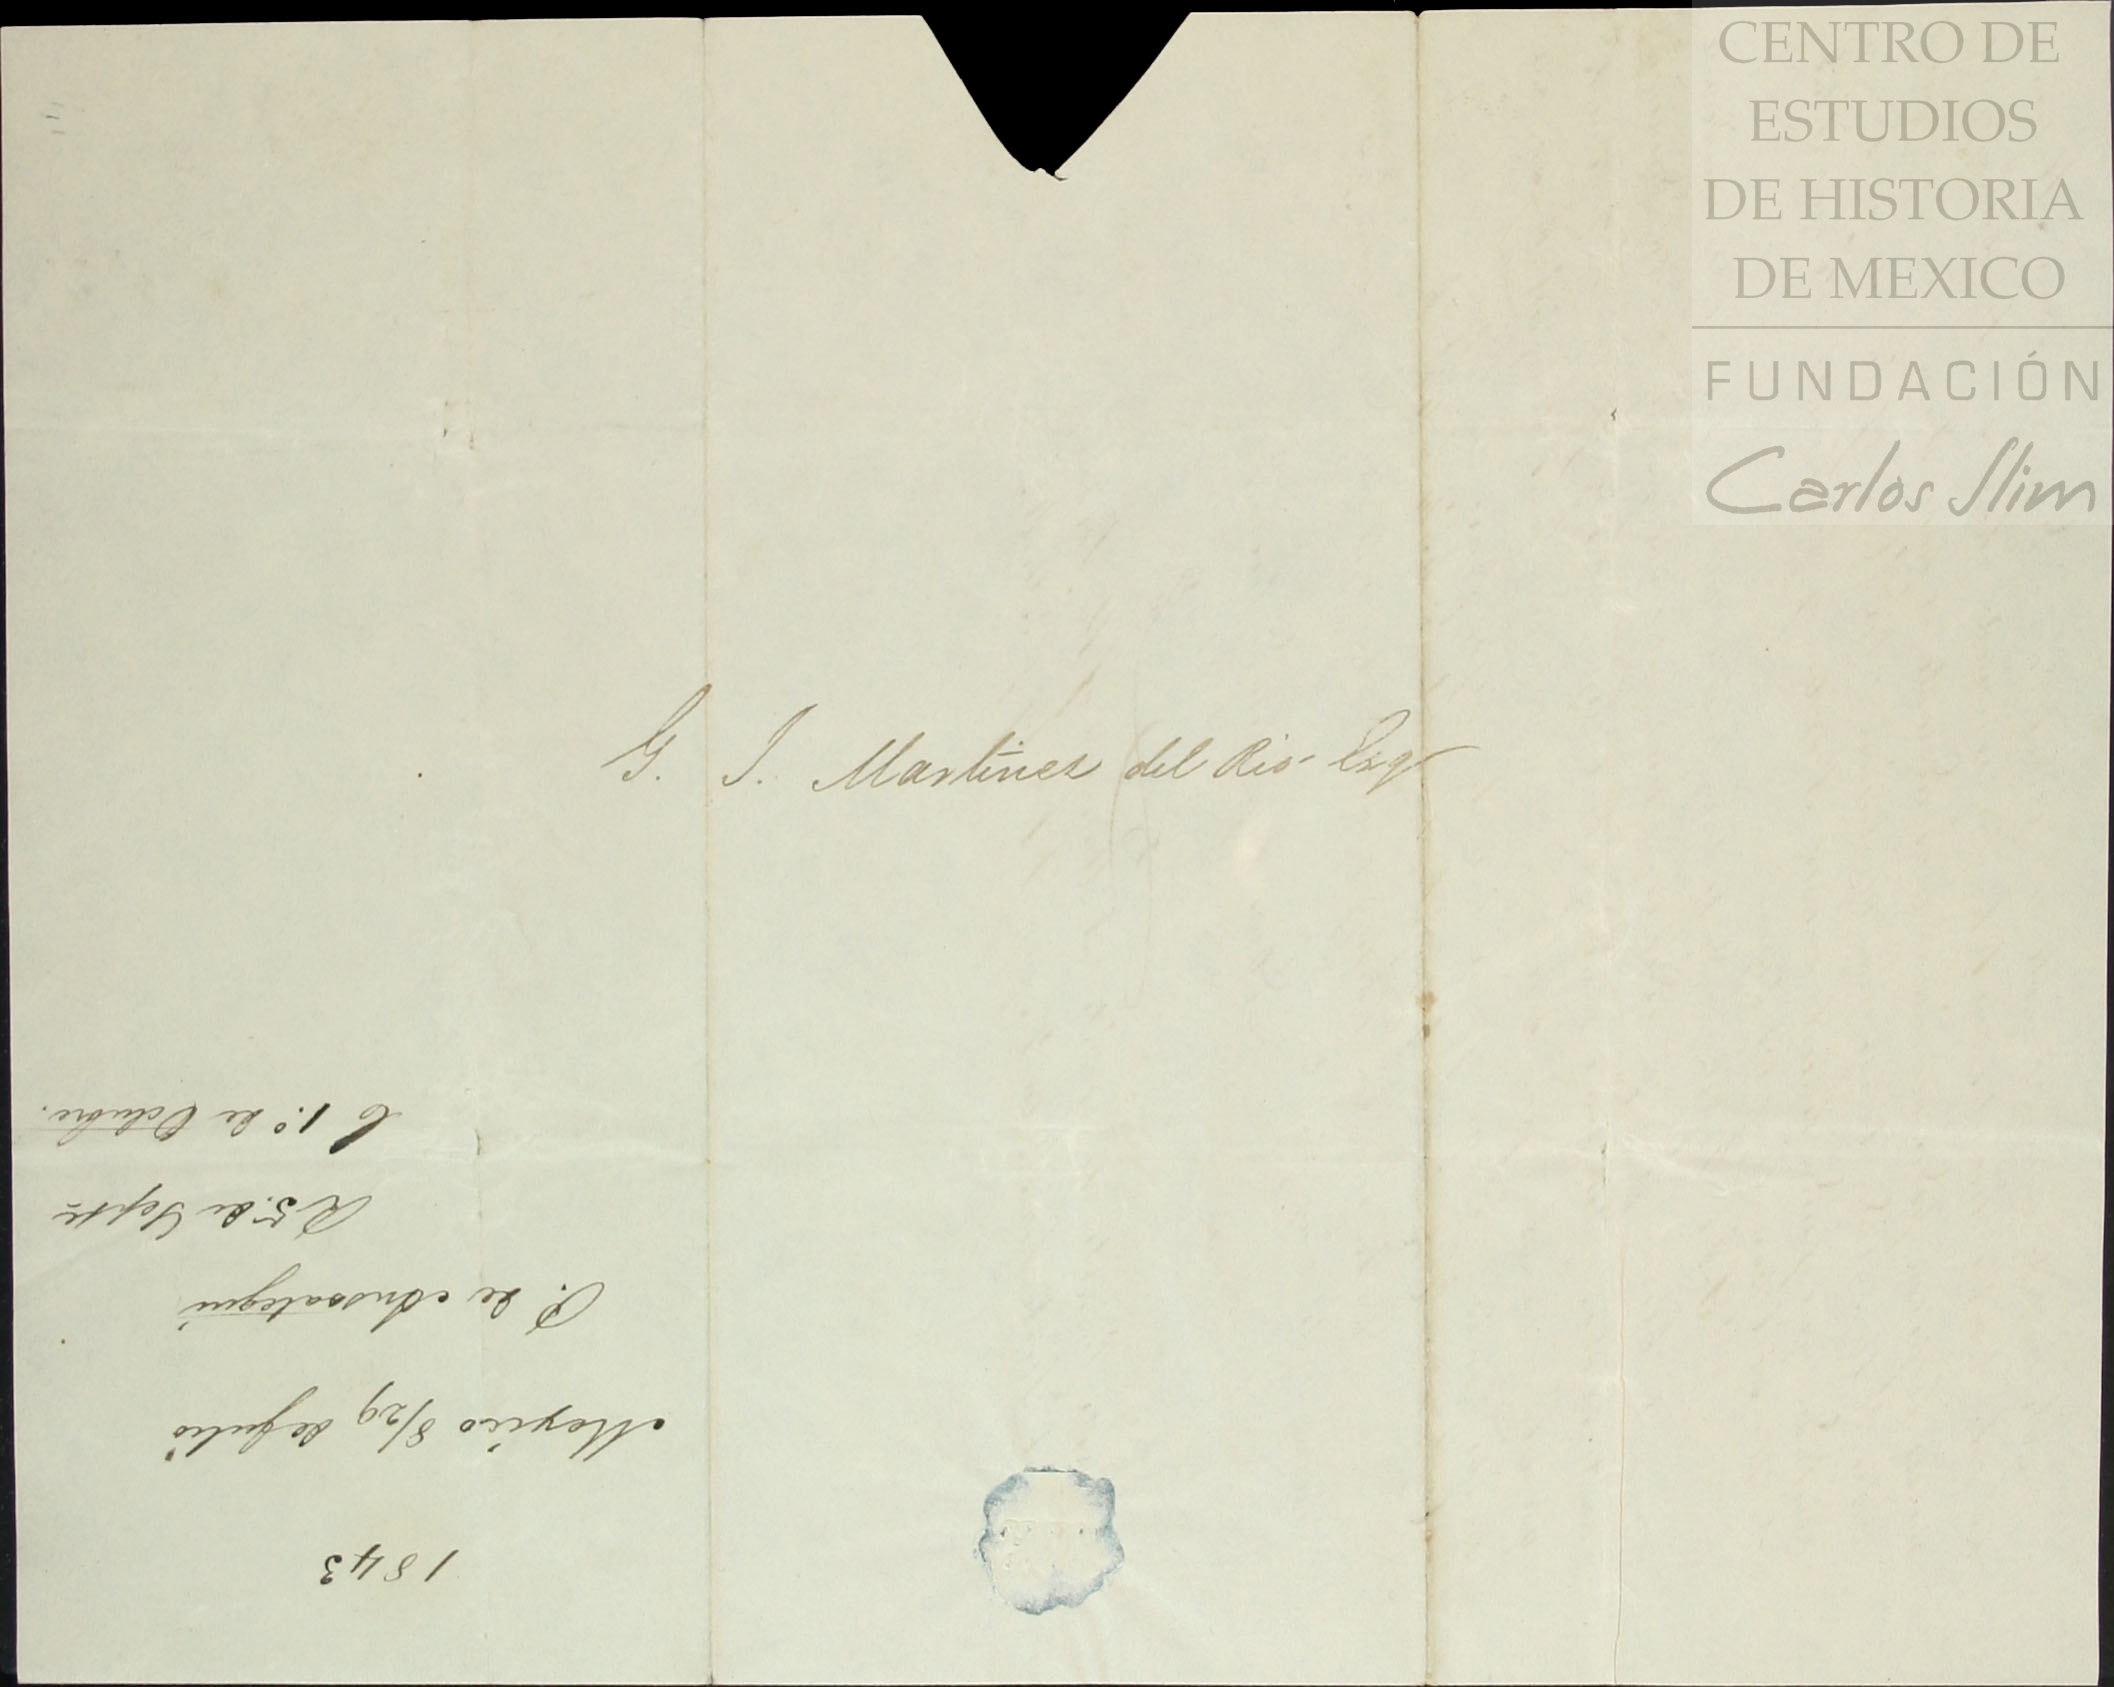 CENTRO DE
ESTUDIOS
DE HISTORIA
DE MEXICO
FUNDACIÓN
Carlos Slim
G. J. Martinez del Rio Esqr
1843
Megico 8/29 de Julio
P. de Ansoategui
R 5. de Septe
C 1º. de Octubre.